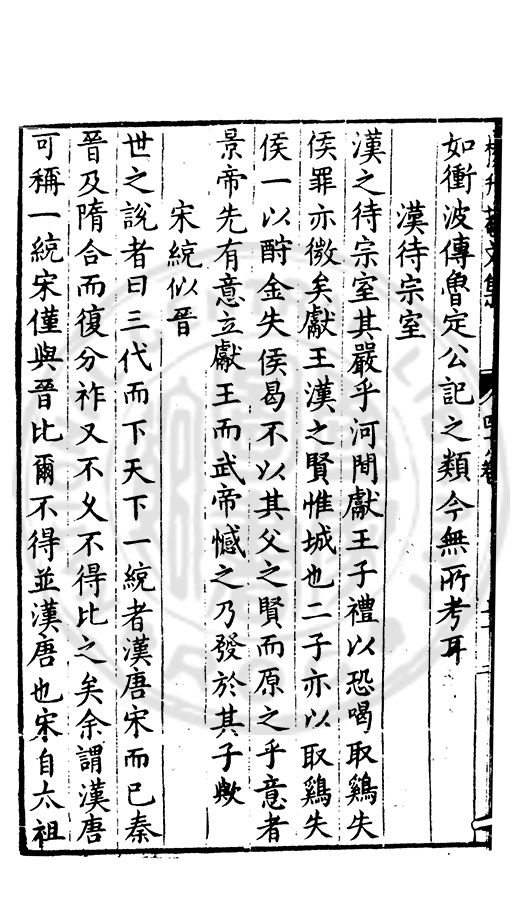 如衝波傳魯定公記之類今無所考耳
漢待宗室
漢之待宗室其嚴乎河間獻王子禮以恐喝取鷄失
侯罪亦微矣獻王漢之賢惟城也二子亦以取鷄失
侯一以酎金失侯曷不以其父之賢而原之乎意者
景帝先有意立獻王而武帝憾之乃發於其子歟
宋統似晉
世之說者曰三代而下天下一統者漢唐宋而已秦
晉及隋合而復分祚又不久不得比之矣余謂漢唐
可稱一統宋僅與晉比爾不得並漢唐也宋自太祖